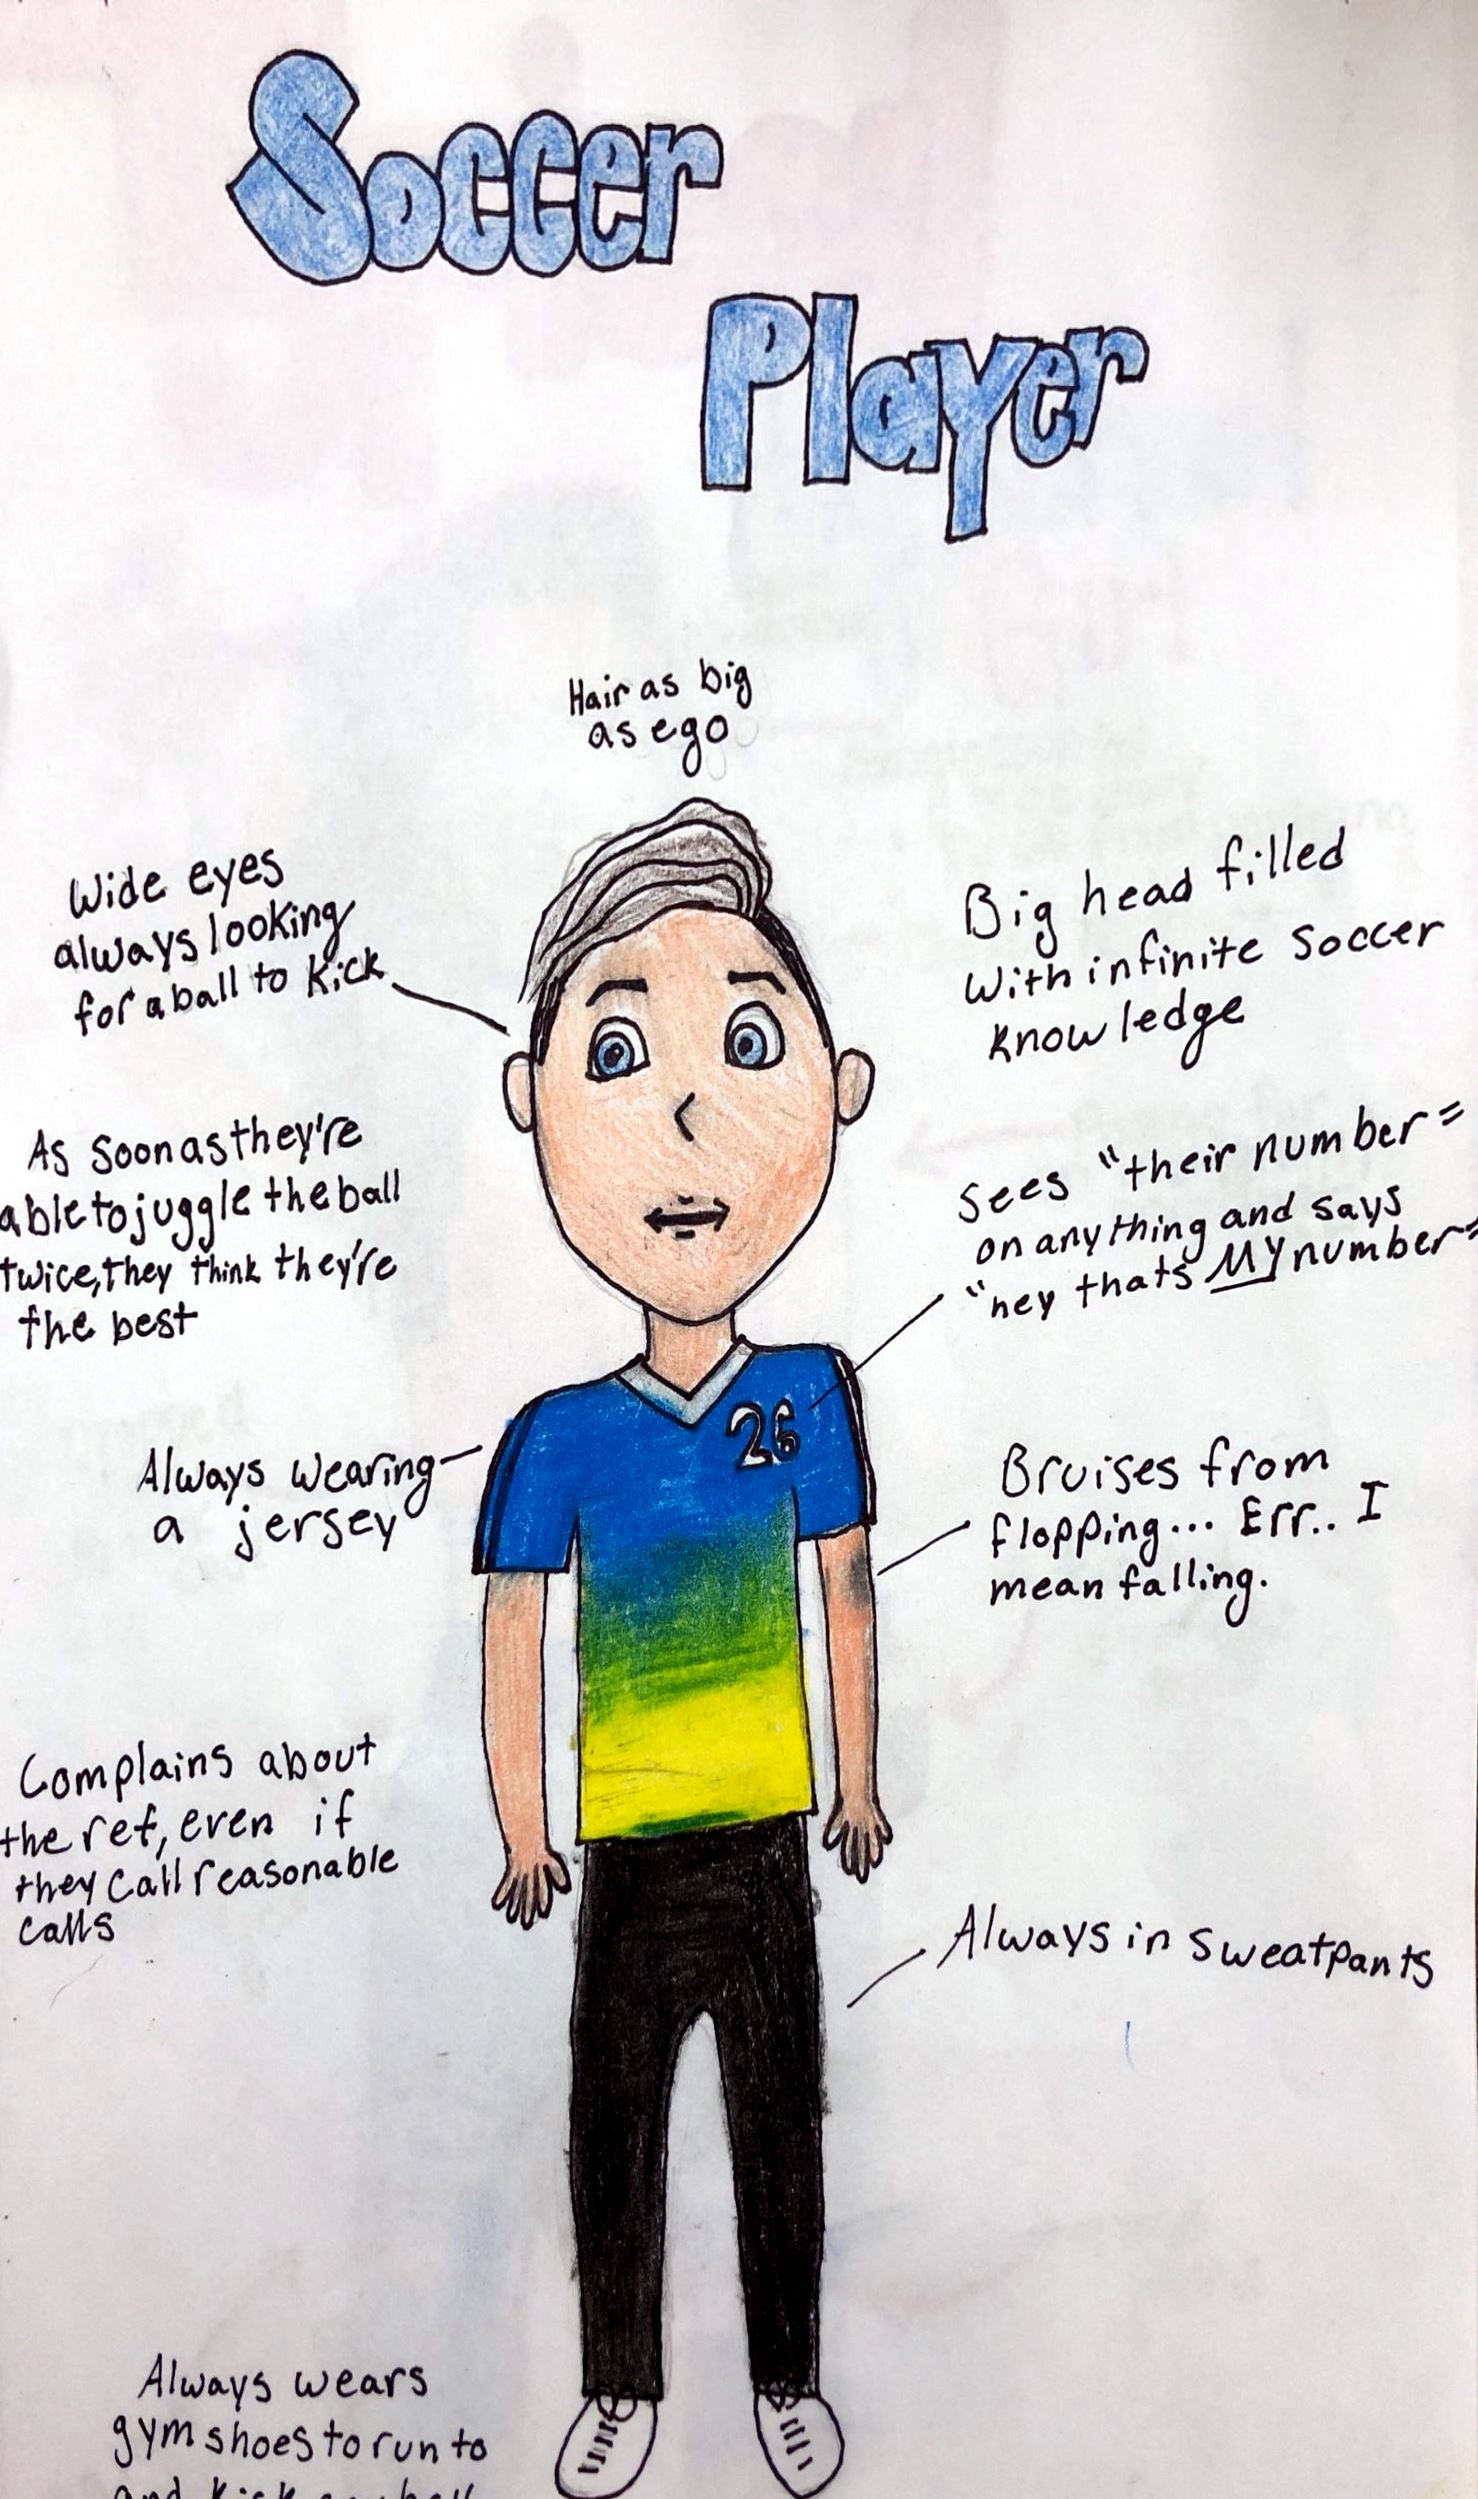 Soccer
Player
Hair as big
as ego
Wide eyes
always looking
for a ball to kick
Big head filled
with infinite soccer
knowledge
As soon as they're
able to juggle the ball
twice, they think they're
the best
Sees "their number"
on anything and says
"hey thats MY number"
26
Always wearing
a jersey
Bruises from
flopping... Err.. I
mean falling.
Complains about
the ref, even if
they call reasonable
calls
Always in sweatpants
Always wears
gym shoes to run to
and kick